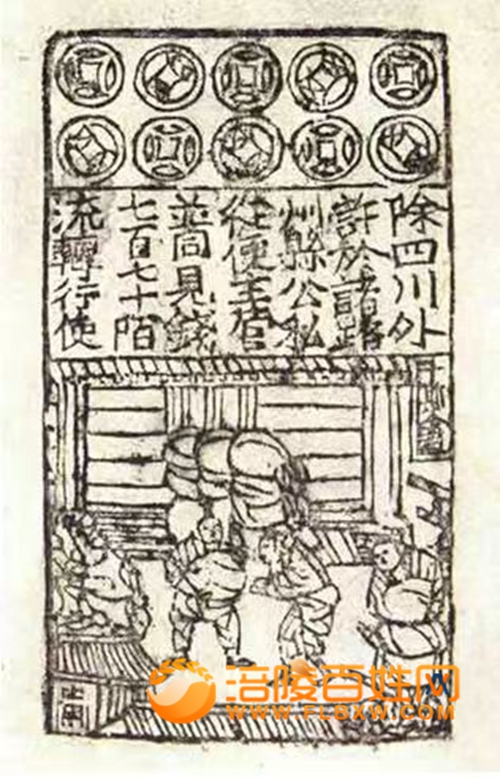 除四川外
許於諸路
州縣公私
從便主管
並同見錢
七百七十陌
流轉行使
涪陵百姓网
WWW.FLBXW.COM